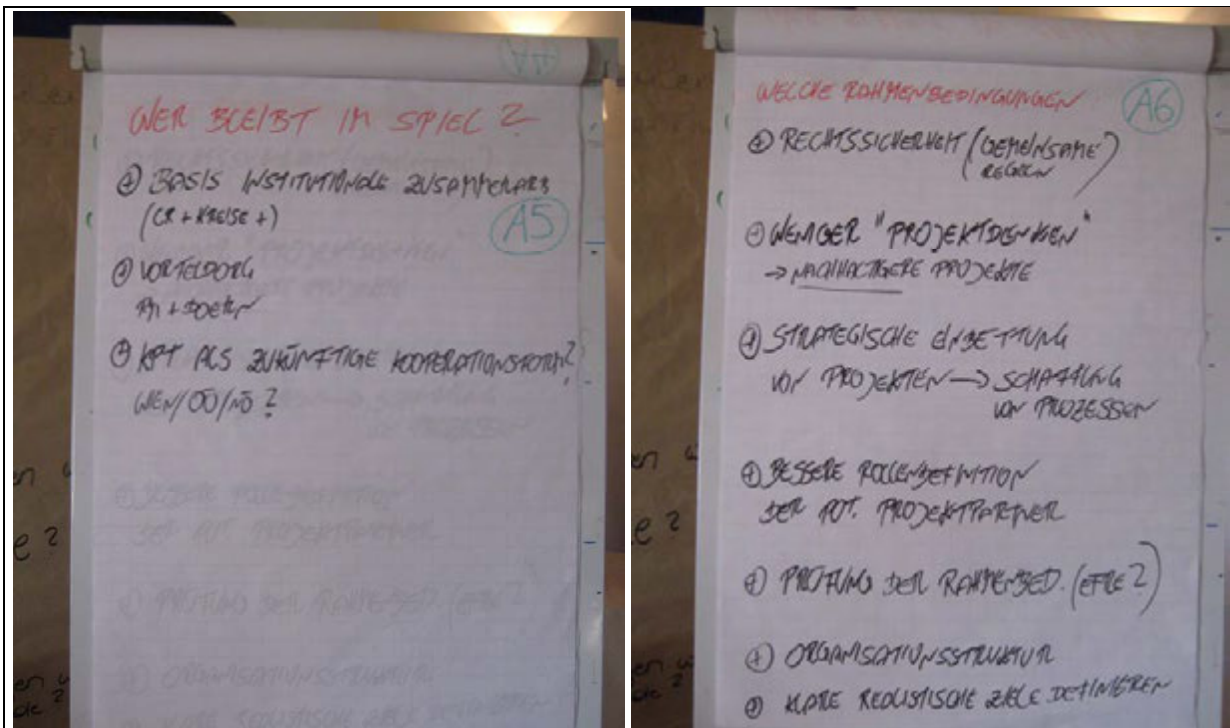 WER BLEIBT IM SPIEL ?
⊕ BASIS INSTITUTIONELLE ZUSAMMENARB
(CR + KREISE +)
A5
⊕ KPT ALS ZUKÜNFTIGE KOOPERATIONSFORM?
WIEN/OÖ/NÖ ?
WELCHE RAHMENBEDINGUNGEN
A6
⊕ RECHTSSICHERHEIT (GEMEINSAME
REGELN)
⊕ WENIGER "PROJEKTDENKEN"
→ NACHHALTIGERE PROJEKTE
⊕ STRATEGISCHE EINBETTUNG
VON PROJEKTEN → SCHAFFUNG
VON PROZESSEN
⊕ BESSERE ROLLENDEFINITION
DER POT. PROJEKTPARTNER
⊕ PRÜFUNG DER RAHMENBED. (EFRE ?)
⊕ ORGANISATIONSSTRUKTUR
⊕ KLARE REALISTISCHE ZIELE DEFINIEREN